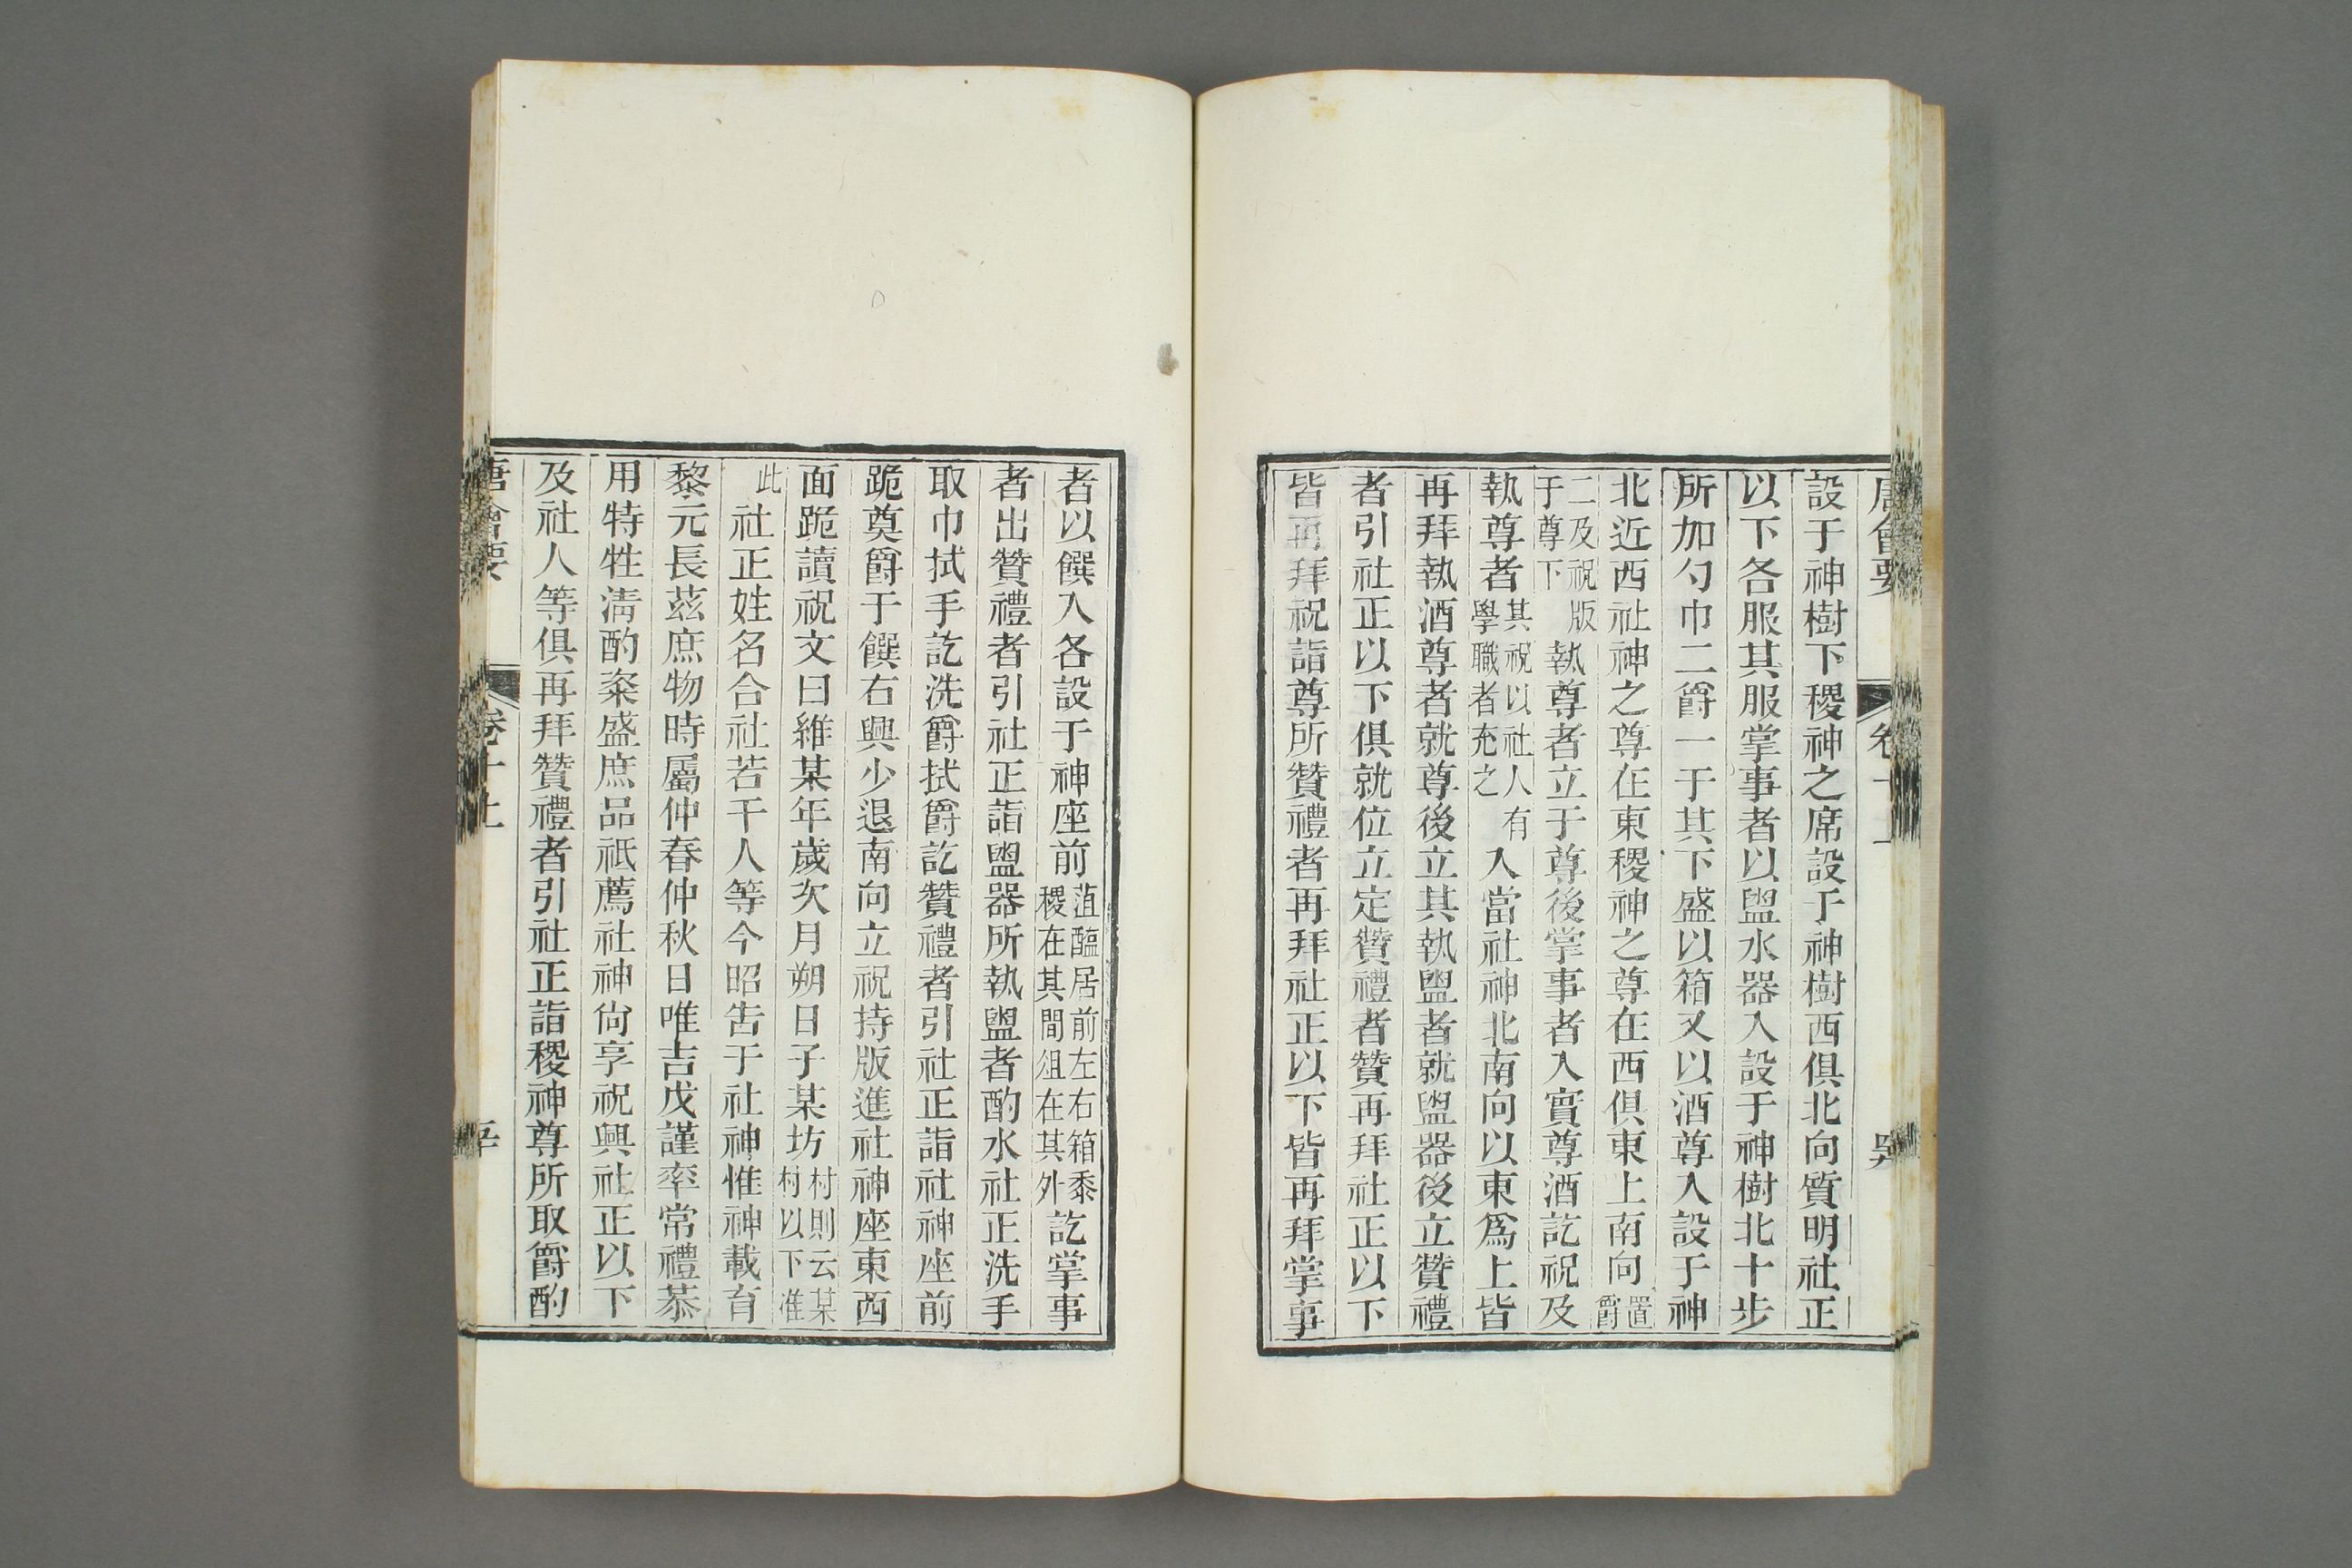 設于神樹下稷神之席設于神樹西俱北向質明社正
以下各服其服掌事者以盥水器入設于神樹北十步
所加勺巾二爵一于其下盛以箱又以酒尊入設于神
北近西社神之尊在東稷神之尊在西俱東上南向置爵
二及祝版于尊下執尊者立于尊後掌事者入實尊酒訖祝及
執尊者其祝以社人有學職者充之入當社神北南向以東爲上皆
再拜執酒尊者就尊後立其執盥者就盥器後立贊禮
者引社正以下俱就位立定贊禮者贊再拜社正以下
皆再拜祝詣尊所贊禮者再拜社正以下皆再拜掌事
者以饌入各設于神座前菹醢居前左右箱黍稷在其間俎在其外訖掌事
者出贊禮者引社正詣盥器所執盥者酌水社正洗手
取巾拭手訖洗爵拭爵訖贊禮者引社正詣社神座前
跪奠爵于饌右興少退南向立祝持版進社神座東西
面跪讀祝文曰維某年歲次月朔日子某坊村則云某村以下准
此社正姓名合社若干人等今昭告于社神惟神載育
黎元長茲庶物時屬仲春仲秋日唯吉戊謹率常禮恭
用特牲淸酌粢盛庶品祗薦社神尙享祝興社正以下
及社人等俱再拜贊禮者引社正詣稷神尊所取爵酌
唐會要 卷十上